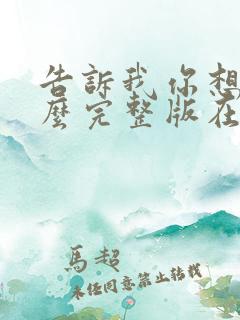 告訴我你想
麼完整版在
馬超
未經同意禁止轉載